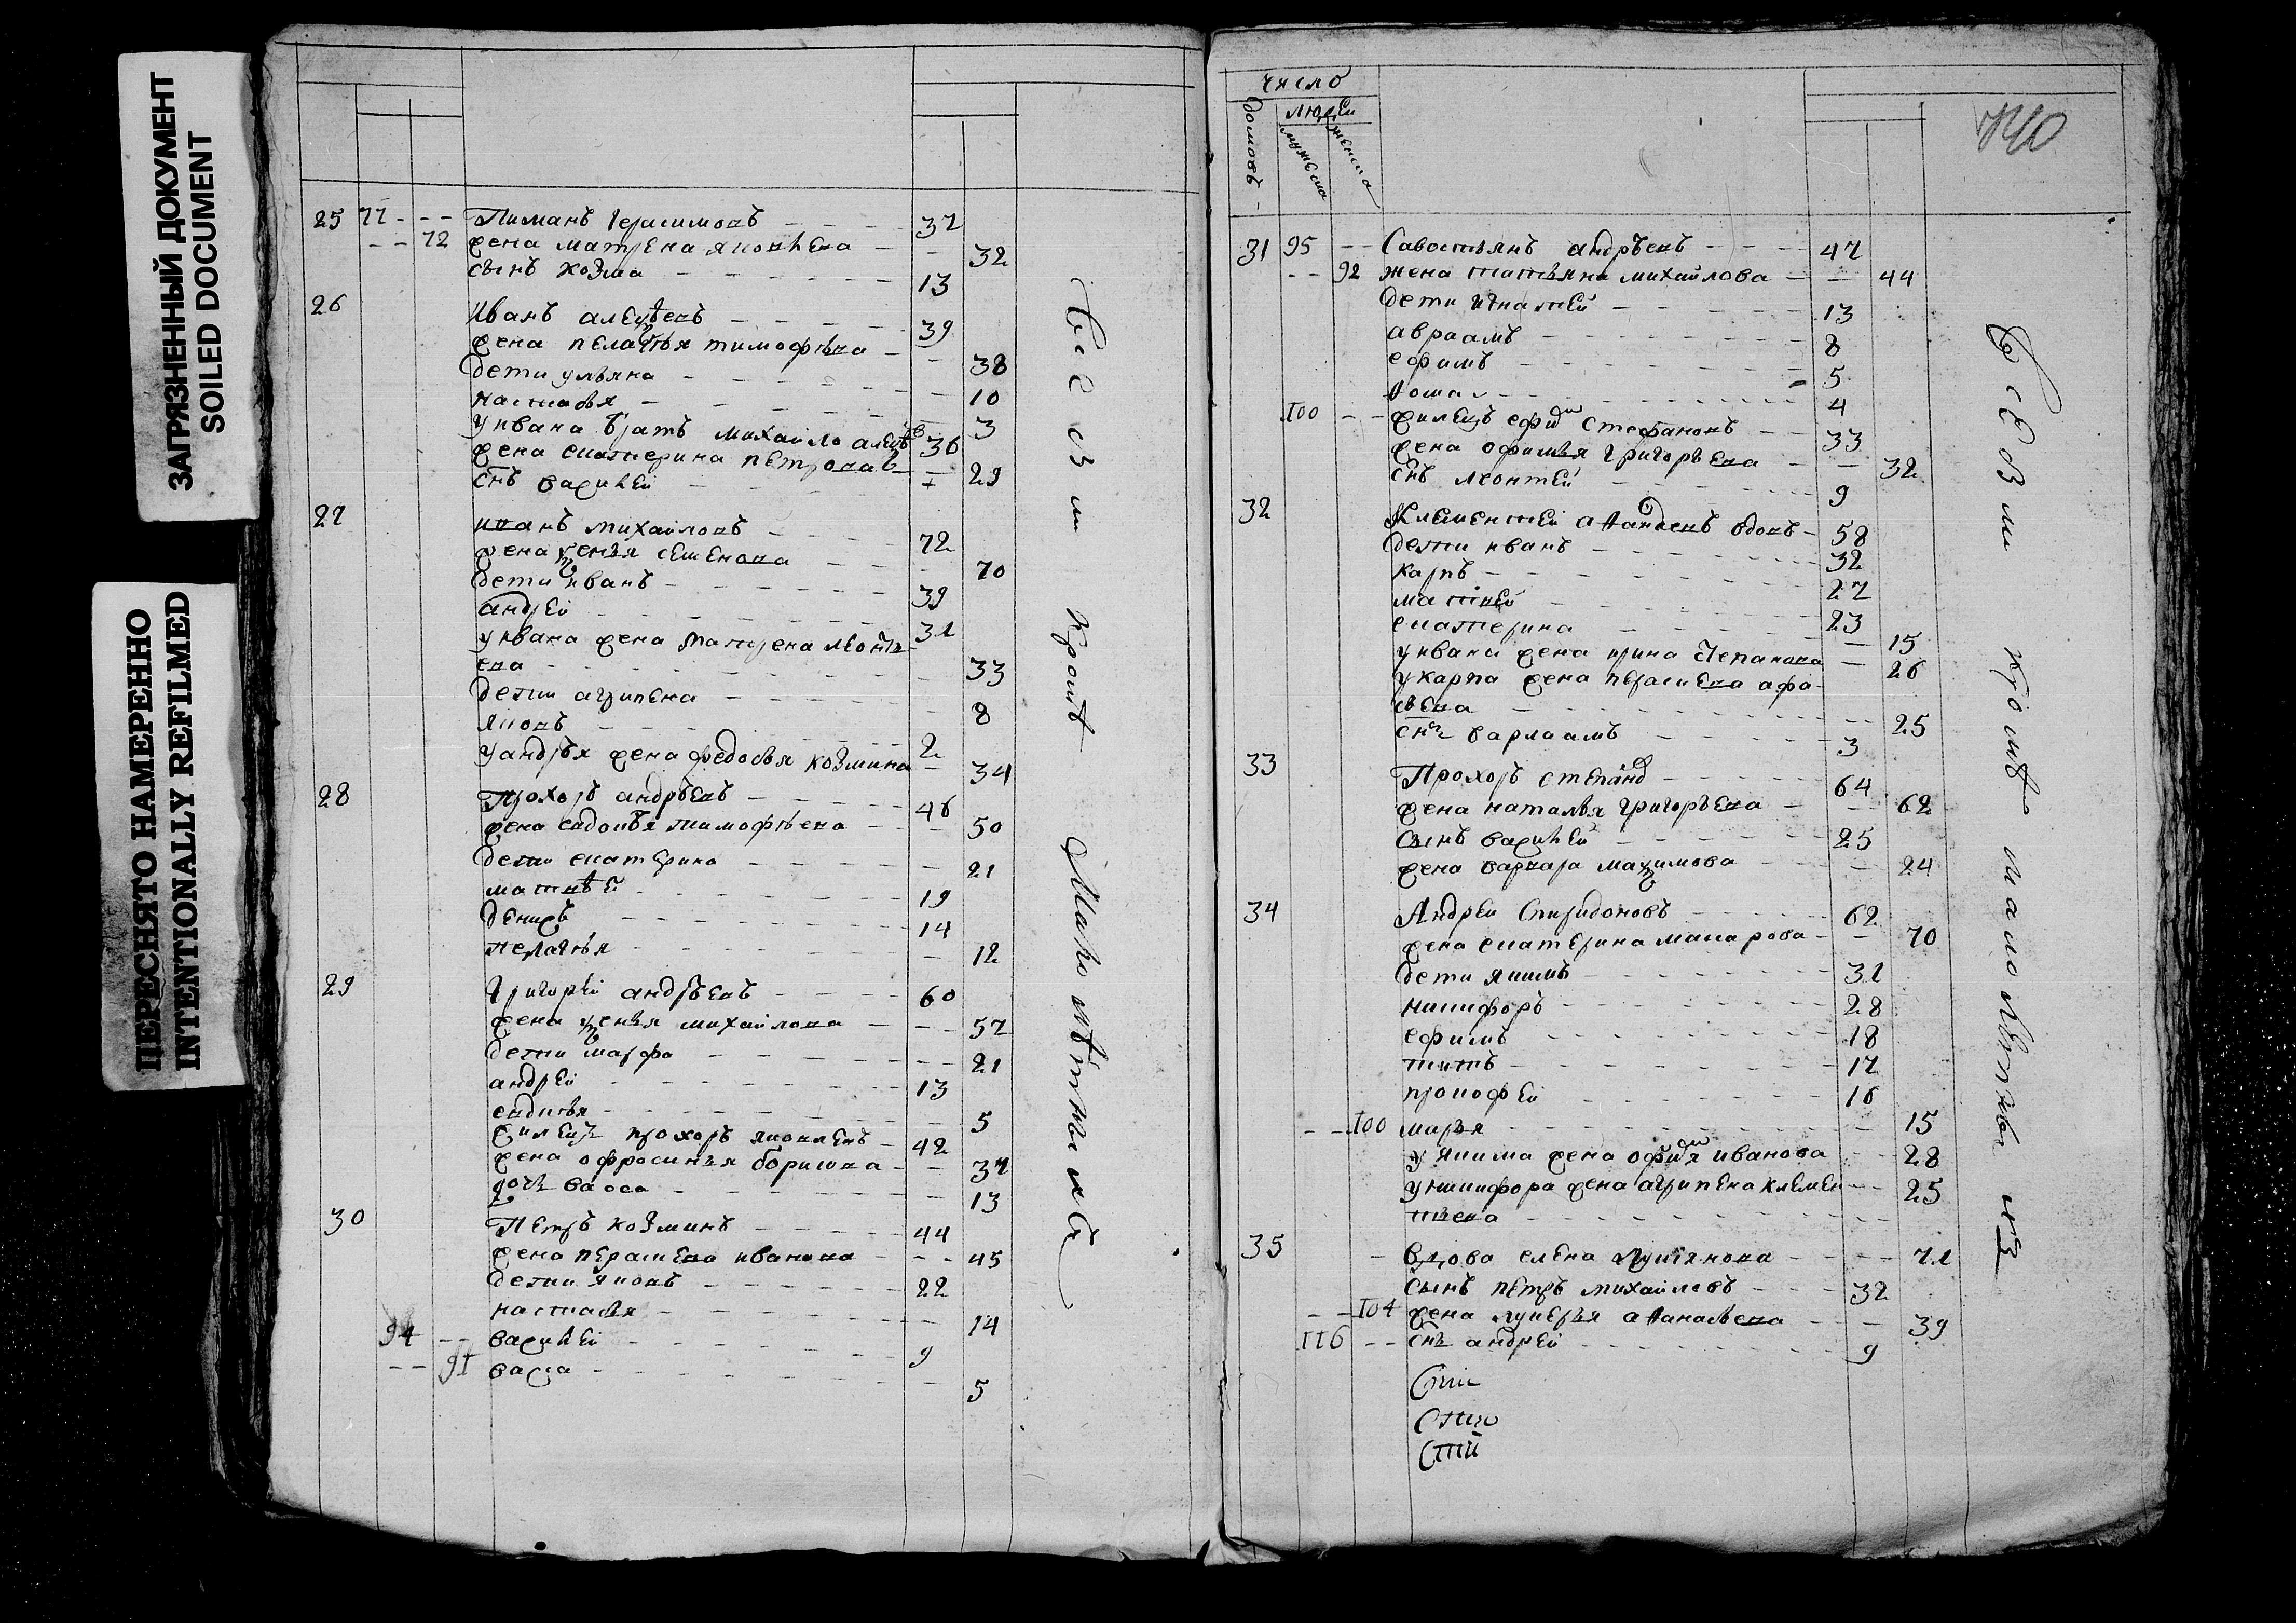 ЗАГРЯЗНЕННЫЙ ДОКУМЕНТ
SOILED DOCUMENT
ПЕРЕСНЯТО НАМЕРЕННО
INTENTIONALLY REFILMED
25 77 - - - Пиманъ Герасимовъ - - 37
- - 72 жена матрена яковлева - - 32
сынъ козма - - - 13
26 Иванъ алеѯѣевъ - - - 39
жена пелагѣя тимофѣева - - 38
дети ульяна - - - 10
настасья - - - 3
у ивана братъ михайло алеѯѣевъ 36
жена екатерина петрова - 29
снъ василей - - -
27 иванъ михайловъ - - - 72
жена ѯенья семенова - - 70
дети иванъ - - - 39
андрей - - - 31
у ивана жена матрена леонтье
ева - - - 33
дети агрипена - - - 8
яковъ - - - 2
у андрѣя жена федосья козмина - 34
28 Прохоръ андрѣевъ - - - 46
жена евдокѣя тимофѣева - - 50
дети екатерина - - - 21
матвѣй - - - 19
денисъ - - - 14
пелагѣя - - - 12
29 Григорей андрѣевъ - - - 60
жена ѯенья михайлова - - - 57
дети марфа - - - 21
андрей - - - 13
евдокѣя - - - 5
жилецъ прохоръ яковлевъ - 42
жена офросинья борисова - - 37
дочь васса - - - 13
30 Петръ козминъ - - - 44
жена перасковa иванова - - - 45
дети яковъ - - - 22
настасья - - - 14
94 - - василей - - - 9
- - 91 васса - - - 5
Всѣ
число
домовъ
людей
мужеска
женска
740
31 95 - - Савостьянъ андрѣевъ - - - 47
- - 92 жена татьяна михайлова - - 44
дети игнатей - - - 13
авраамъ - - - 8
ефимъ - - - 5
фома - - - 4
100 - - жилецъ ефимъ Стефановъ - - 33
жена офимья григорьева - - 32
снъ леонтей - - - 9
32 Клементей афанасьевъ вдовъ - 58
дети иванъ - - - 32
карпъ - - - 27
матвей - - - 23
екатерина - - - 15
у ивана жена ирина Степанова - 26
у карпа жена
- - - 25
снъ варлаамъ - - - 3
33 Прохоръ степановъ - - - 64
жена наталья григорьева - - 62
сынъ василей - - - 25
жена варвара маѯимова - - 24
34 Андрей Спиридоновъ - - - 62
жена екатерина макарова - - 70
дети якимъ - - - 31
никифоръ - - - 28
ефимъ - - - 18
титъ - - - 17
прокофей - - - 16
- - 100 марья - - - 15
у якима жена офимья иванова - 28
у никифора жена агрипена клемен- - 25
тьева - - -
35 вдова елена лукіянова - - - 71
сынъ петръ михайловъ - - 32
- - 104 жена лукерья афанасьева - - 39
116 - - снъ андрей - - - 9